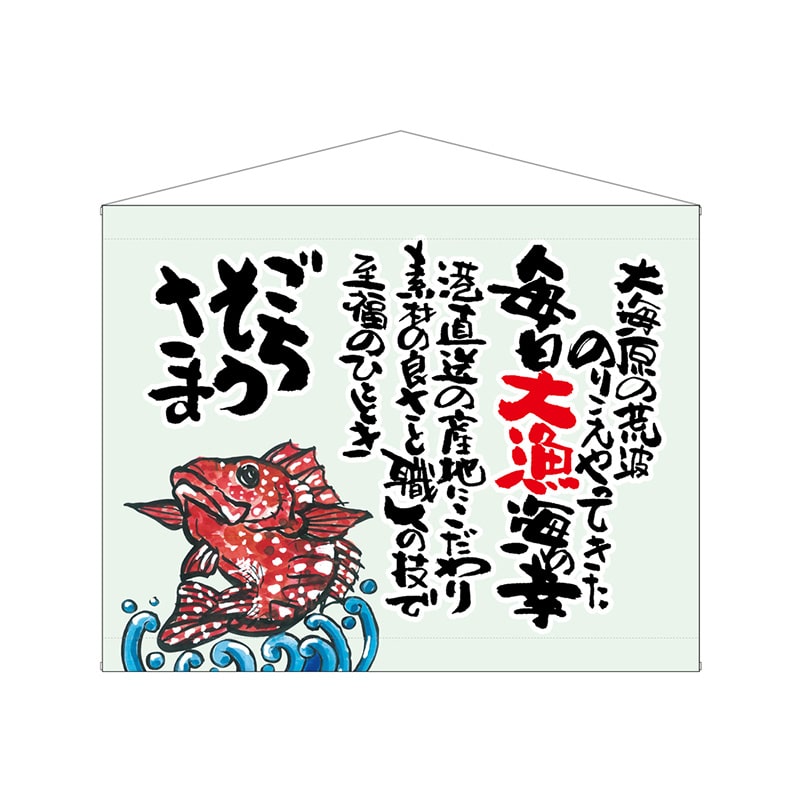 大海原の荒波
のりこえやってきた
毎日大漁海の幸
港直送の産地にこだわり
素材の良さと職人の技で
至福のひととき
ごち
そう
さま